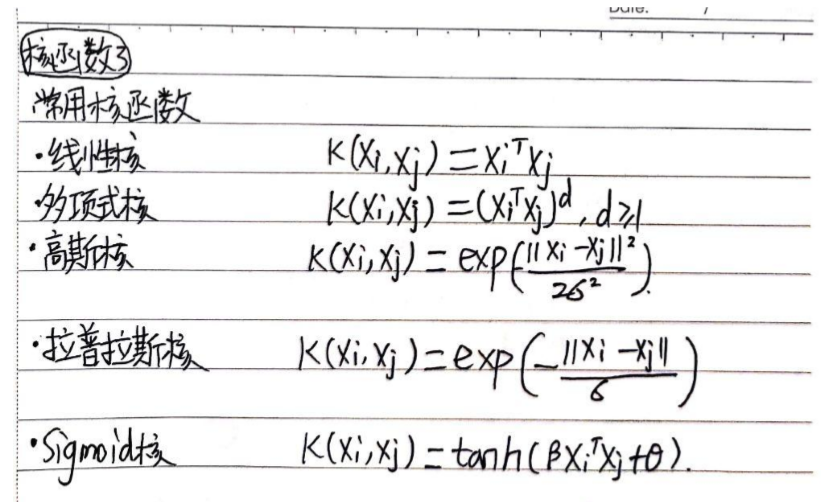 Date: /
核函数3
常用核函数
·线性核 K(xi,xj)=xiᵀxj
·多项式核 K(xi,xj)=(xiᵀxj)ᵈ, d≥1
·高斯核 K(xi,xj)=exp(-||xi-xj||²/2σ²).
·拉普拉斯核 K(xi,xj)=exp(-||xi-xj||/σ)
·Sigmoid核 K(xi,xj)=tanh(βxiᵀxj+θ).